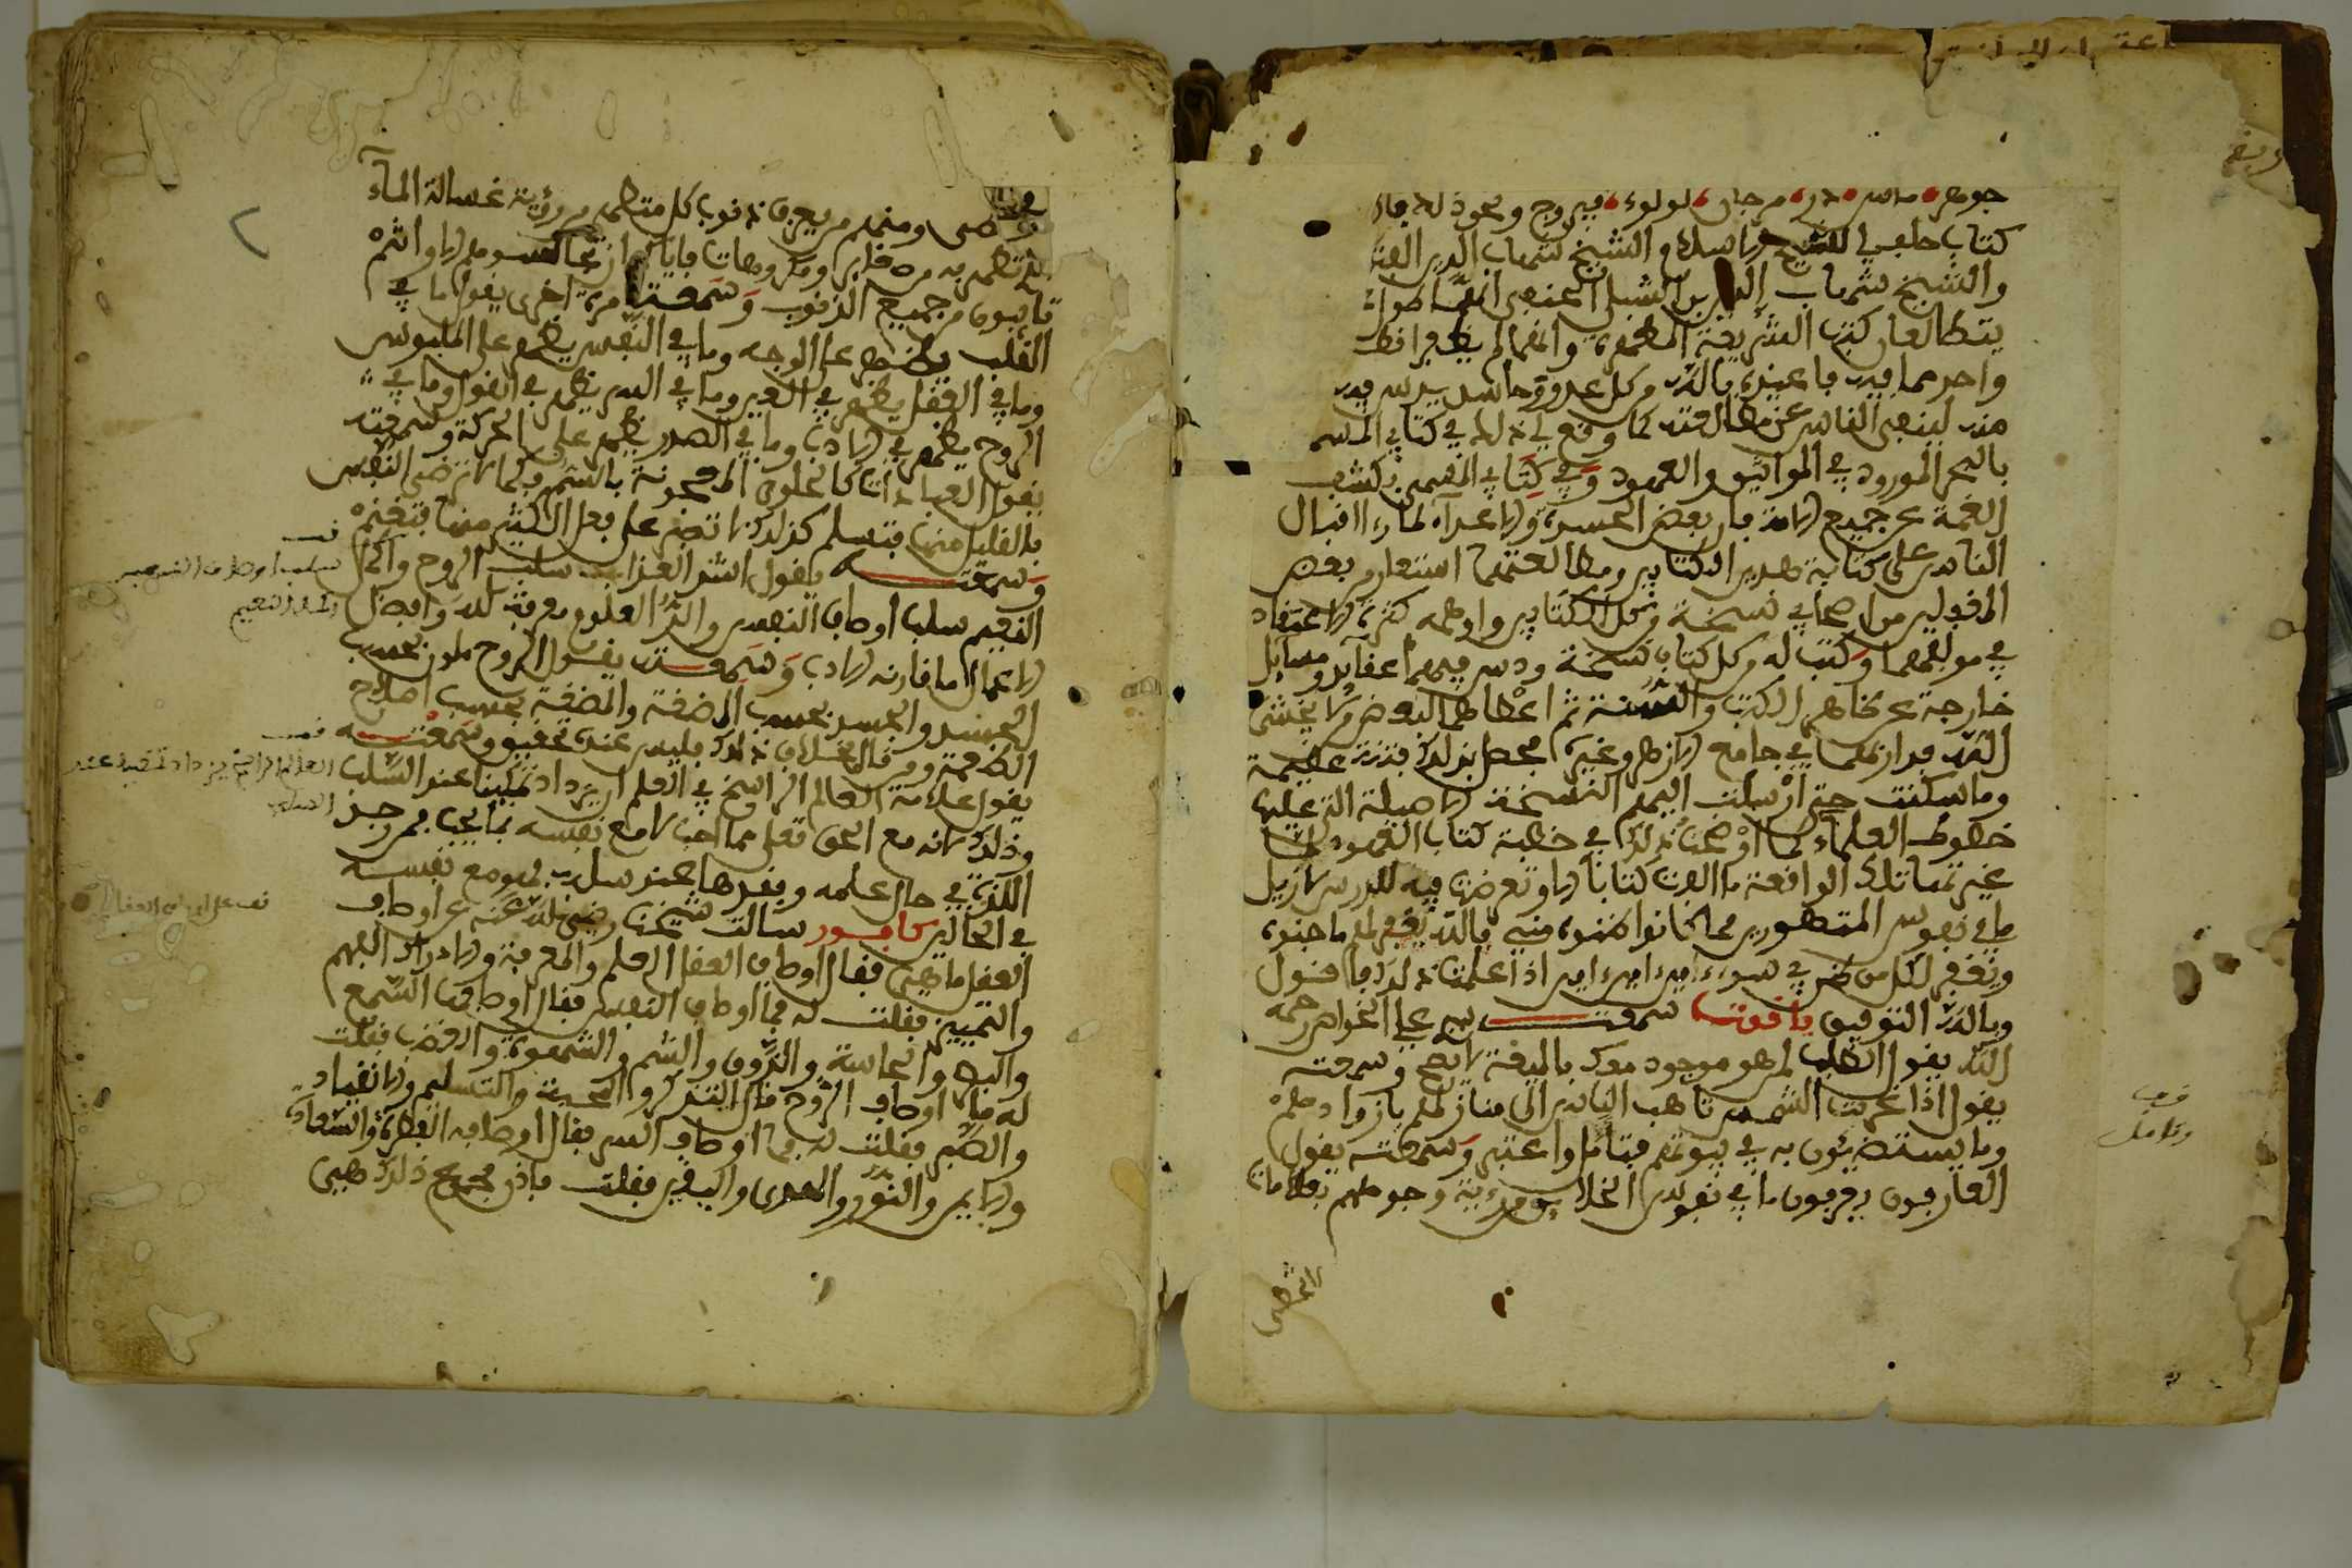 جوهر ماس در مرجان لولوء فيروج ونحو ذلك فان
كتاب الشيخ والشيخ شهاب الدين
والشيخ شهاب الدين بن الشبلي الحنفي
يتطالعان كتب الشريعة المطهرة وانهما لم يظفرا
واحد مما فيه فاعيذه بالله من كل عدو وحاسد يدس فيه
منه لينفر الناس عن مطالعته كما وقع لي ذلك في كتابي المسمى
بالبحر المورود في المواثيق والعهود وفي كتابي المسمى بكشف
الغمة عن جميع الامة فان بعض الحسدة والاعداء لما راا اقبال
الناس على كتابة هذين الكتابين ومطالعتهما استعار من بعض
المغفلين من اصحابي نسخة من كل الكتابين واوهمه كثرة الاعتقاد
في مولفهما وكتب له من كل كتاب نسخة ودس فيهما عقايد ومسايل
خارجة عن ظاهر الكتب والسنة ثم اعطاهما لبعض من لا يخشى
الله فدار بهما في جامع الازهر وغيره فحصل بذلك فتنة عظيمة
وما سكنت حتى ارسلت اليهم النسخة الاصيلة التي عليها
خطوط العلماء كما اوضحنا ذلك في خطبة كتاب العهود
غير تلك الواقعة ما الفت كتابا الا وتعرضت فيه للدس لازيل
ما في نفوس المتهورين مما كانوا ظنوه مني فالله يغفر لهم ما جنوه
ويغفر لكل من ظن في سوءا امين امين امين اذا علمت ذلك فاقول
وبالله التوفيق ياقوت سمعت سيدي علي الخواص رحمه
الله يقول الطلب لمن هو موجود معك بالمعية لا يصح وسمعته
يقول اذا غربت الشمس تاهب الناس الى منازلهم بازوادهم
وما يستضيئون به في بيوتهم فتامل واعتبر وسمعته يقول
العارفون يعرفون ما في نفوس الخلايق من رؤية وجوههم
قف
وتامل
ومنهم من يعرف ذنوب كل متطهر من رؤية غسالة الماء
تطهر به من قذر ومكروهات فاياك ان تجالسهم الا وانتم
تائبون من جميع الذنوب وسمعته مرة اخرى يقول ما في
القلب يظهر على الوجه وما في النفس يظهر على الملبوس
وما في العقل يظهر في العين وما في السر يظهر في القول وما في
الروح يظهر في الادب وما في الصدر يظهر على الحركة وسمعته
يقول العبادات كالحلوى المعجونة بالسم فكما لا ترضى النفس
بالقليل منها فتسلم كذلك لا تصبر على فعل الكثير منها فتغنم
وسمعته يقول اشد العذاب سلب الروح واكمل
النعيم سلب اوصاف النفس والذ العلوم معرفة الله وافضل
الاعمال ما قارنه الادب وسمعته يقول الروح تلون بحسب
الجسد والجسد بحسب المضغة والمضغة بحسب اصلاح
الطعمة ومن قال بخلاف ذلك فليس عنده تحقيق وسمعته
يقول علامة العالم الراسخ في العلم ان يزداد تمكينا عند السلب
وذلك لانه مع الحق تعلى مما احب لا مع نفسه بما يحب فمن وجد
اللذة في حال علمه وفقدها عند سلبه فهو مع نفسه
في الحالين كافور سالت شيخنا رضي الله عنه عن اوصاف
العقل ما هي فقال اوصاف العقل العلم والمعرفة والادراك الفهم
والتمييز فقلت له فما اوصاف النفس فقال اوصافها السمع
والبصر والحاسة والذوق والشم والشهوة والغضب فقلت
له فما اوصاف الروح قال التذكر والمحبة والتسليم والانقياد
والصبر فقلت له فما اوصاف السر فقال اوصافه الفطرة والسعادة
والايمن والنور والهدى واليقين فقلت فاذن جميع ذلك هي